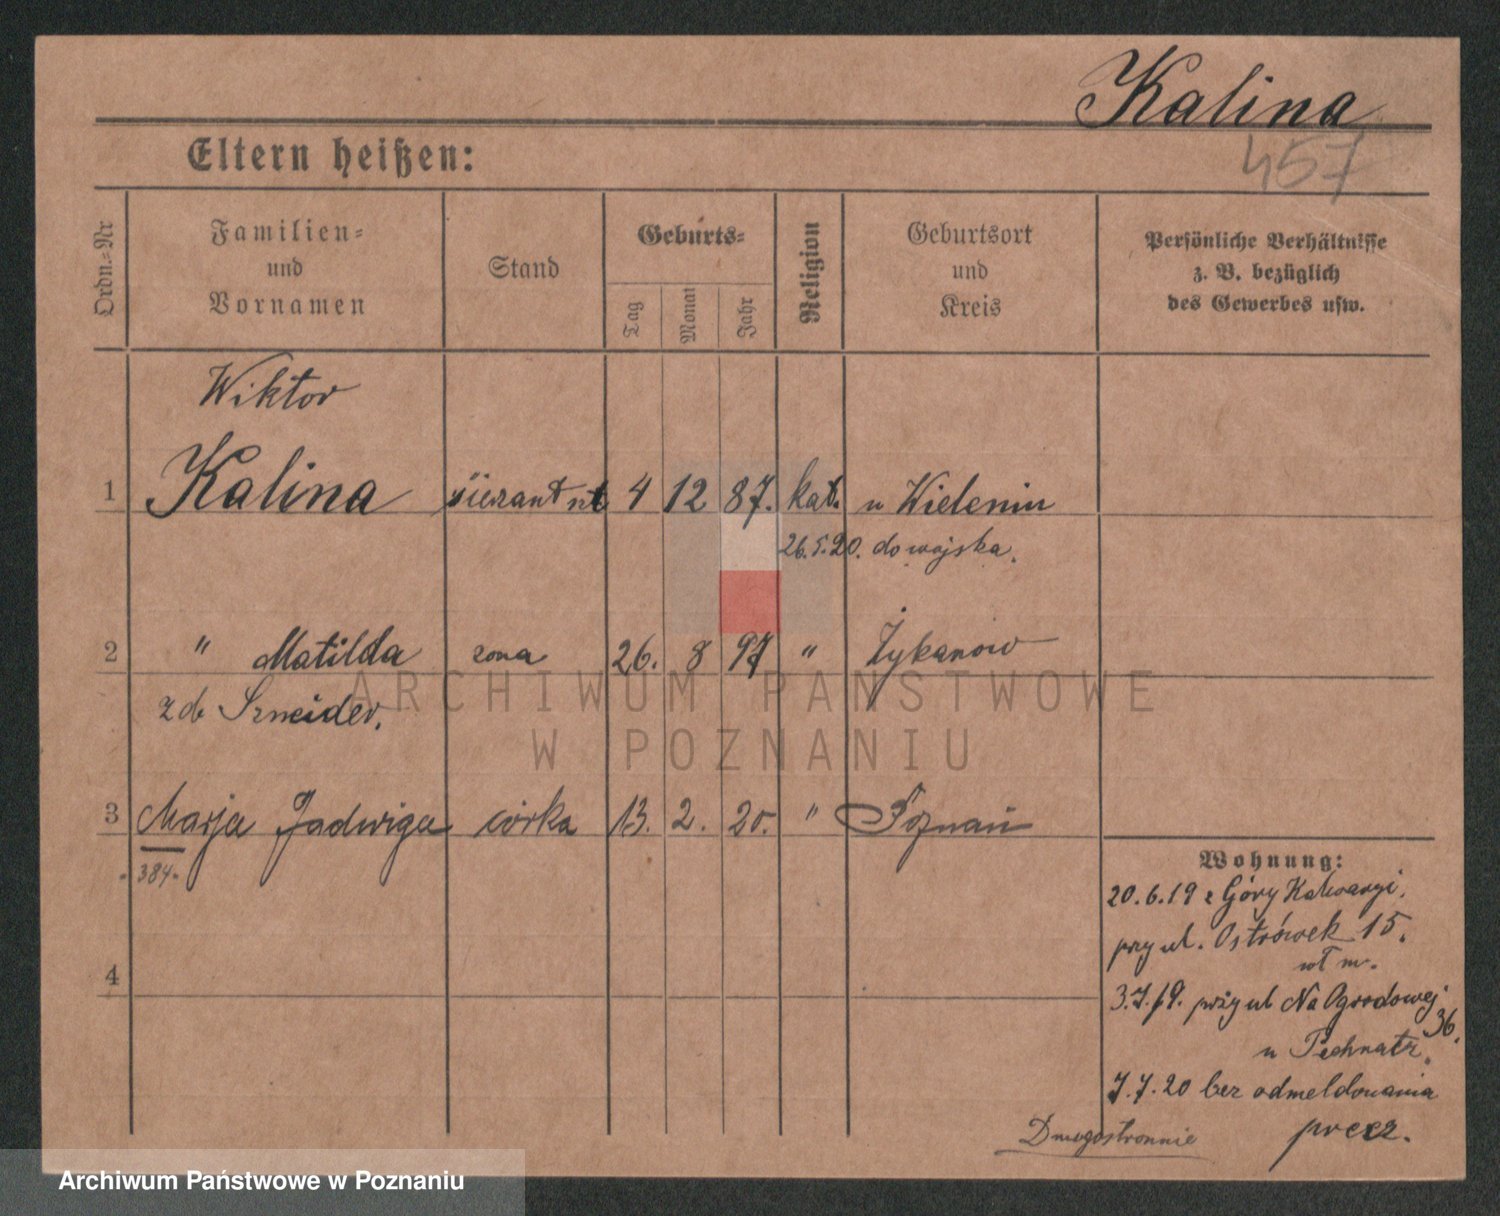 Kalina
457
Eltern heißen:
Ordn.-Nr
Familien-
und
Vornamen
Stand
Geburts-
Tag
Monat
Jahr
Religion
Geburtsort
und
Kreis
Persönliche Verhältnisse
z. B. bezüglich
des Gewerbes usw.
Wiktor
1 Kalina 4 12 87. kat. w Wieleniu
26.5.20. do wojska.
2 " Matilda zona 26. 8 97 " Żykanów
zd. Szneider.
3 Marja Jadwiga córka 13. 2. 20. " Poznań
384.
4
Wohnung:
20.6.19 z Góry Kalwaryi.
przy ul. Ostrówek 15.
wł m.
3.7.19. przy ul Na Ogrodowej
36.
u
7.7.20 bez odmeldowania
precz.
Dwustronnie
ARCHIWUM PAŃSTWOWE
W POZNANIU
Archiwum Państwowe w Poznaniu